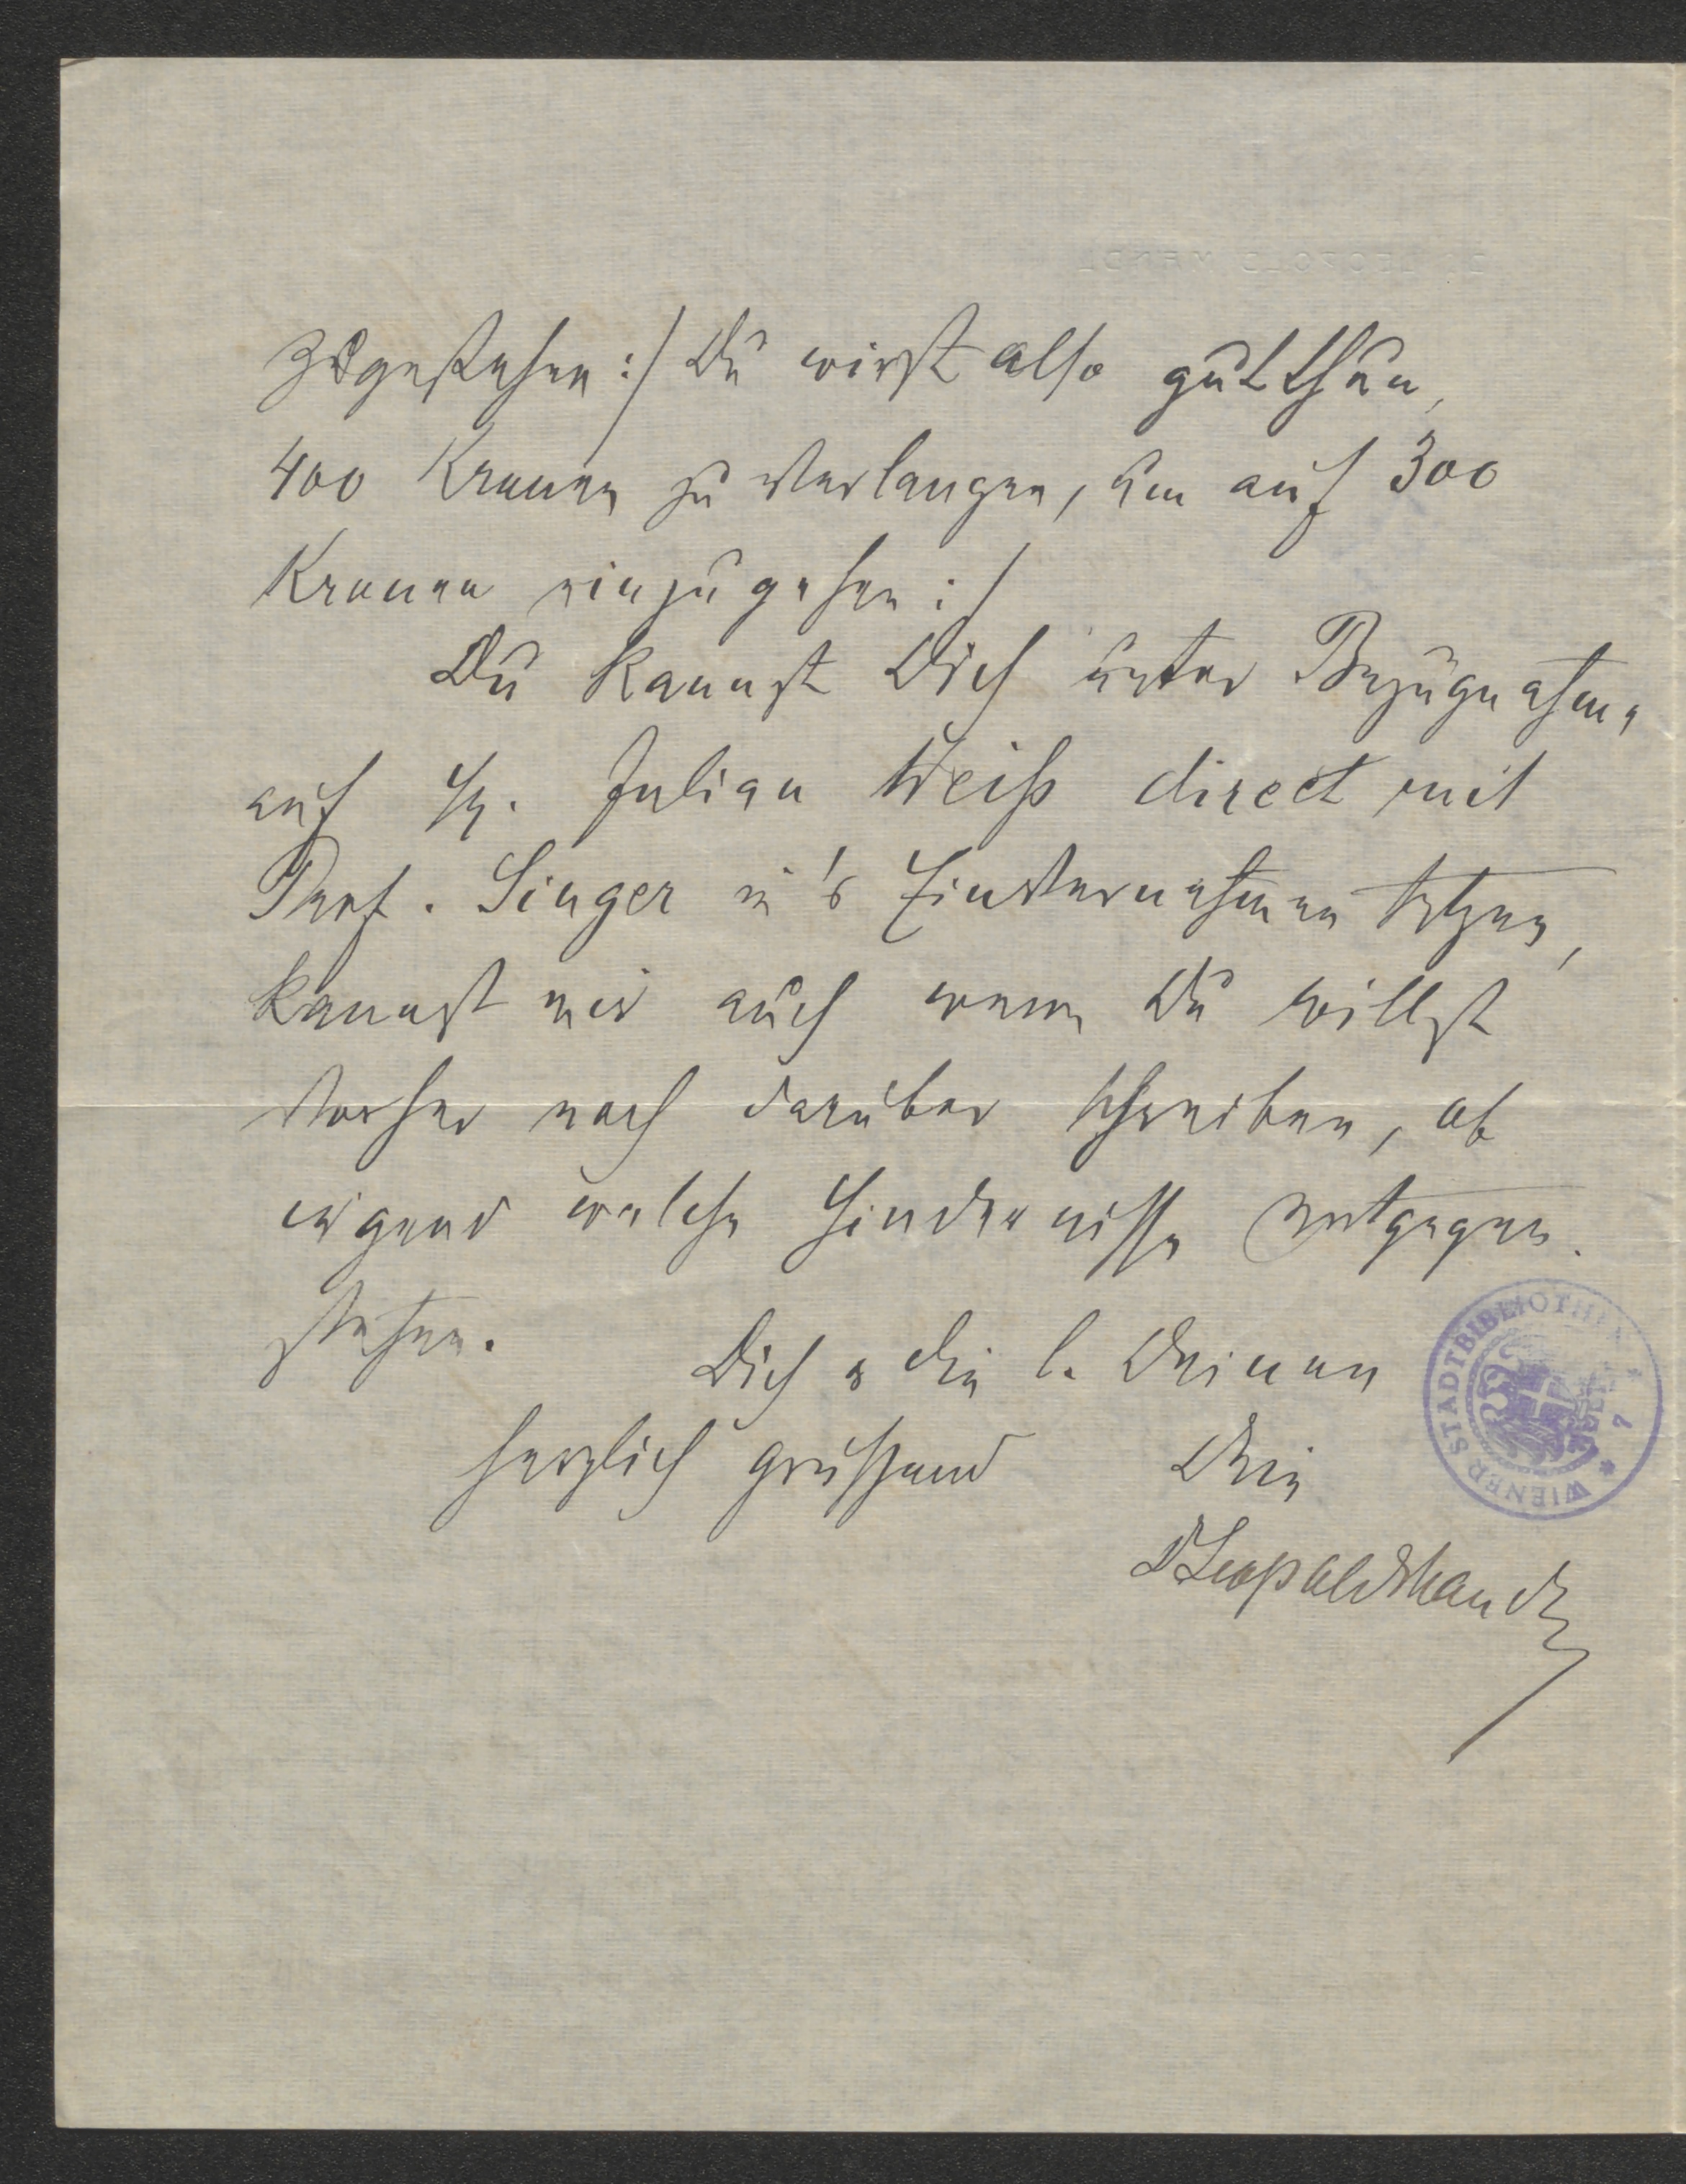 zugestehen :/ Du wirst also gut thun,
400 Kronen zu verlangen, um auf 300
Kronen einzugehen :/
Du kannst Dich unter Bezugnahme
auf H. Julian Weiß direct mit
Prof. Singer in's Einvernehmen setzen,
kannst mir auch wenn Du willst
vorher noch darüber schreiben, ob
irgend welche Hindernisse entgegen
stehen.
Dich & die l. Deinen
herzlich grüßend Dein
D Leopold Mandl
WIENER STADTBIBLIOTHEK * 7 *